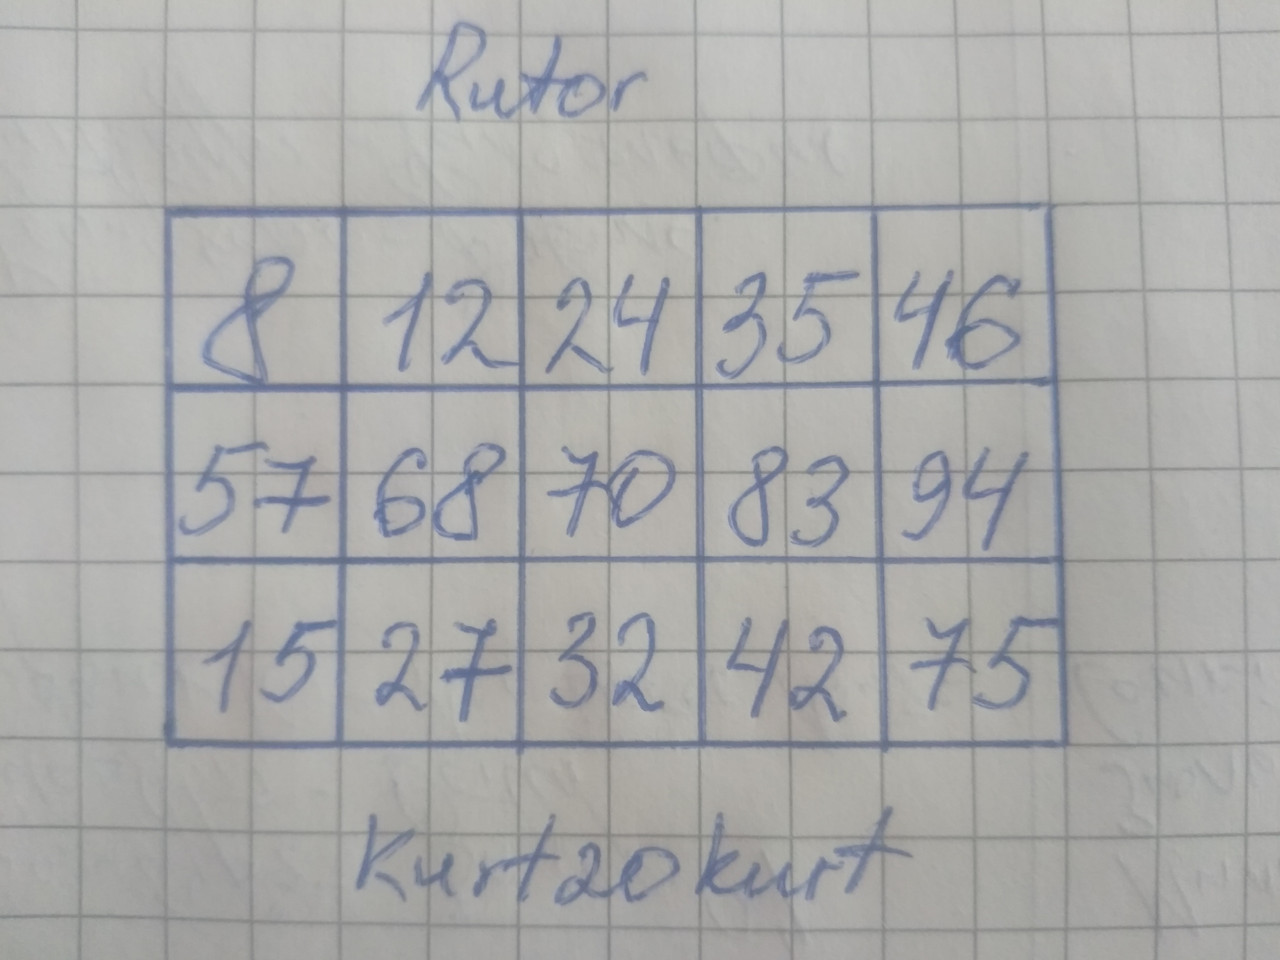 Rutor
8 12 24 35 46
57 68 70 83 94
15 27 32 42 75
Kurt20kurt